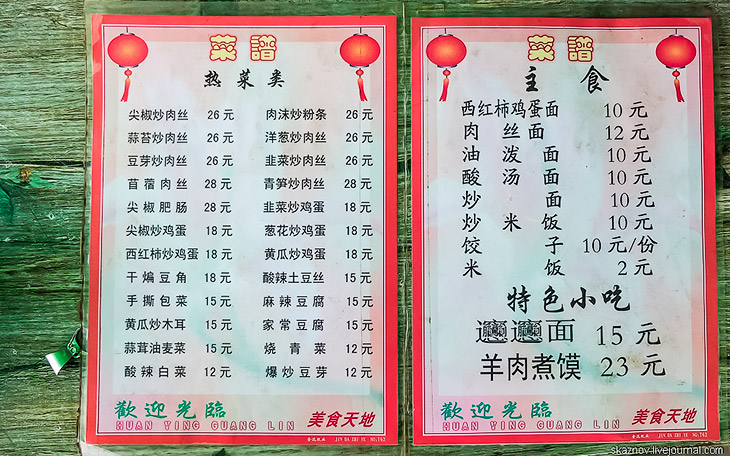 菜譜
热菜类
尖椒炒肉丝 26元 肉沫炒粉条 26元
蒜苔炒肉丝 26元 洋葱炒肉丝 26元
豆芽炒肉丝 26元 韭菜炒肉丝 26元
苜蓿肉丝 28元 青笋炒肉丝 28元
尖椒肥肠 28元 韭菜炒鸡蛋 18元
尖椒炒鸡蛋 18元 葱花炒鸡蛋 18元
西红柿炒鸡蛋 18元 黄瓜炒鸡蛋 18元
干煸豆角 18元 酸辣土豆丝 15元
手撕包菜 15元 麻辣豆腐 15元
黄瓜炒木耳 15元 家常豆腐 15元
蒜茸油麦菜 15元 烧青菜 12元
酸辣白菜 12元 爆炒豆芽 12元
歡迎光臨
HUAN YING GUANG LIN
美食天地
JIN DA ZHI YE NO.T62
菜譜
主食
西红柿鸡蛋面 10元
肉丝面 12元
油泼面 10元
酸汤面 10元
炒面 10元
炒米饭 10元
饺子 10元/份
米饭 2元
特色小吃
𰻞𰻞面 15元
羊肉煮馍 23元
歡迎光臨
HUAN YING GUANG LIN
美食天地
JIN DA ZHI YE NO.T62
skaznov.livejournal.com